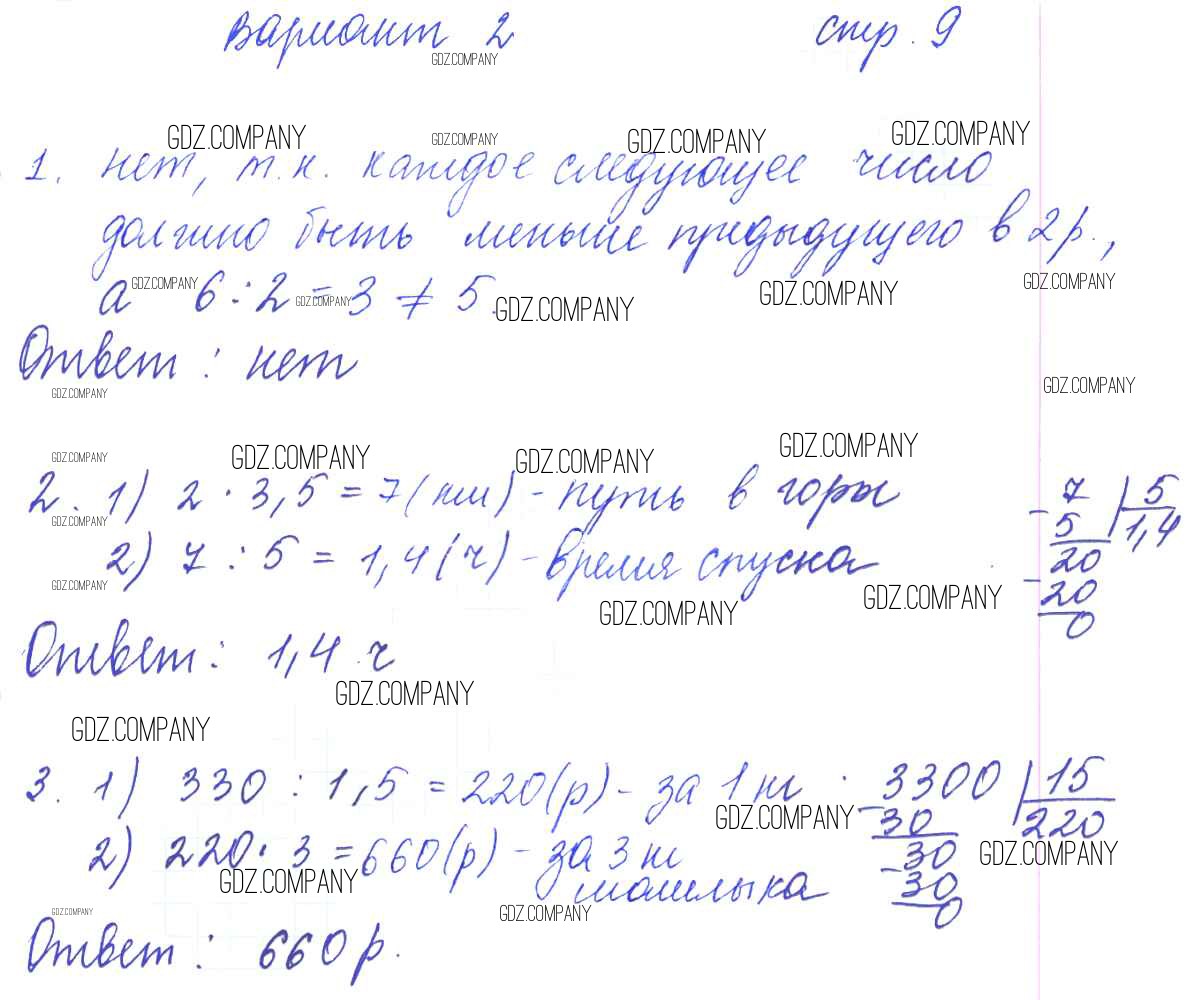 Вариант 2 стр. 9
GDZ.COMPANY
GDZ.COMPANY GDZ.COMPANY GDZ.COMPANY GDZ.COMPANY
1. нет, т.к. каждое следующее число
должно быть меньше предыдущего в 2 р.,
а 6 : 2 = 3 ≠ 5.
GDZ.COMPANY GDZ.COMPANY GDZ.COMPANY GDZ.COMPANY GDZ.COMPANY
Ответ : нет
GDZ.COMPANY GDZ.COMPANY
GDZ.COMPANY GDZ.COMPANY GDZ.COMPANY GDZ.COMPANY
2. 1) 2 · 3,5 = 7 (км) - путь в горы
7 | 5
- 5 1,4
GDZ.COMPANY
2) 7 : 5 = 1,4 (ч) - время спуска
20
- 20
0
GDZ.COMPANY GDZ.COMPANY GDZ.COMPANY
Ответ : 1,4 ч
GDZ.COMPANY
GDZ.COMPANY
3. 1) 330 : 1,5 = 220 (р) - за 1 кг
3300 | 15
- 30 220
GDZ.COMPANY
2) 220 · 3 = 660 (р) - за 3 кг
30
GDZ.COMPANY
GDZ.COMPANY
- 30
0
GDZ.COMPANY GDZ.COMPANY
Ответ : 660 р.